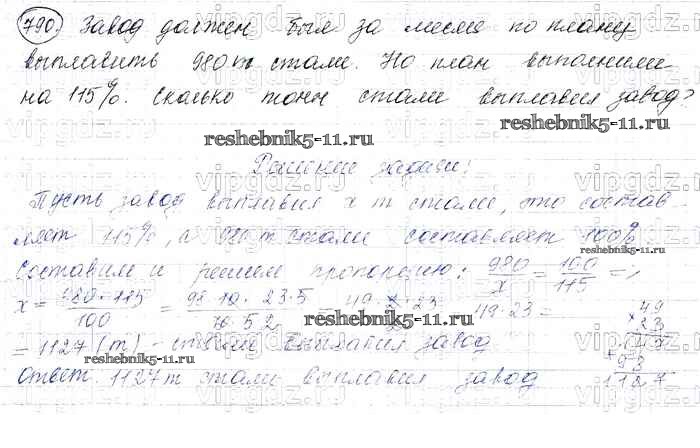 790. Завод должен был за месяц по плану
выплавить 980 т стали. Но план выполнили
на 115%. Сколько тонн стали выплавил завод?
reshebnik5-11.ru
reshebnik5-11.ru
Решение задачи:
Пусть завод выплавил х т стали, это состав-
ляет 115%, а 980 т стали составляет 100%
reshebnik5-11.ru
Составим и решим пропорцию: 980/х = 100/115 =>
х = 980·115/100 = 98·10·23·5/10·5·2 = 49·2·23/2 = 49·23 =
reshebnik5-11.ru
= 1127 (т) - стали выплавил завод
reshebnik5-11.ru
Ответ. 1127 т стали выплавил завод
49
× 23
147
+ 98
1127
reshebnik5-11.ru
vipgdz.ru